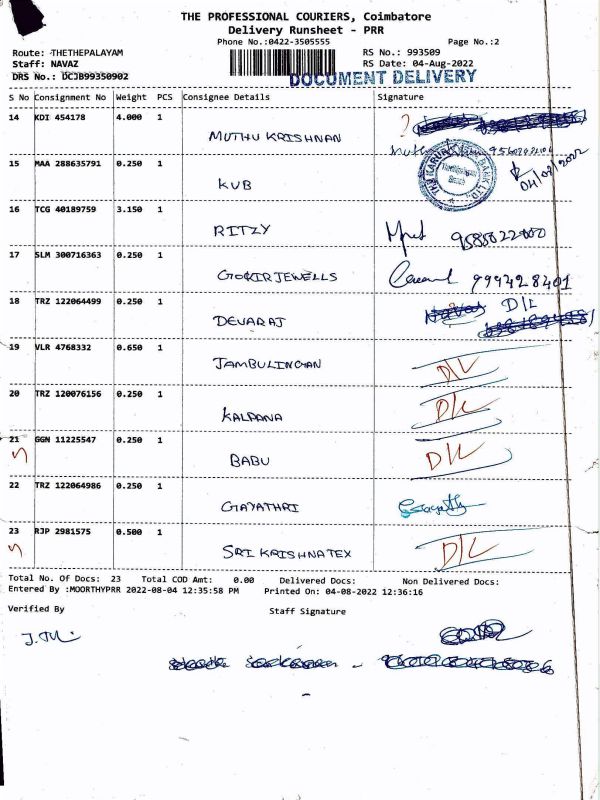 THE PROFESSIONAL COURIERS, Coimbatore
Delivery Runsheet - PRR
Phone No.:0422-3505555 Page No.:2
Route: THETHEPALAYAM RS No.: 993509
Staff: NAVAZ RS Date: 04-Aug-2022
DRS No.: DCJB99350902 DOCUMENT DELIVERY
S No Consignment No Weight PCS Consignee Details Signature
14 KDI 454178 4.000 1 MUTHU KRISHNAN
15 MAA 288635791 0.250 1 KVB 04/08/2022
THE KARUR VYSYA BANK LTD.
Branch
16 TCG 40189759 3.150 1 RITZY
17 SLM 300716363 0.250 1 GOKIR JEWELLS 999428401
18 TRZ 122064499 0.250 1 DEVARAJ D/L
19 VLR 4768332 0.650 1 JAMBULINGAN D/L
20 TRZ 120076156 0.250 1 KALPANA D/L
21 GGN 11225547 0.250 1 BABU D/L
22 TRZ 122064986 0.250 1 GAYATHRI
23 RJP 2981575 0.500 1 SRI KRISHNA TEX D/L
Total No. Of Docs: 23 Total COD Amt: 0.00 Delivered Docs: Non Delivered Docs:
Entered By :MOORTHYPRR 2022-08-04 12:35:58 PM Printed On: 04-08-2022 12:36:16
Verified By Staff Signature